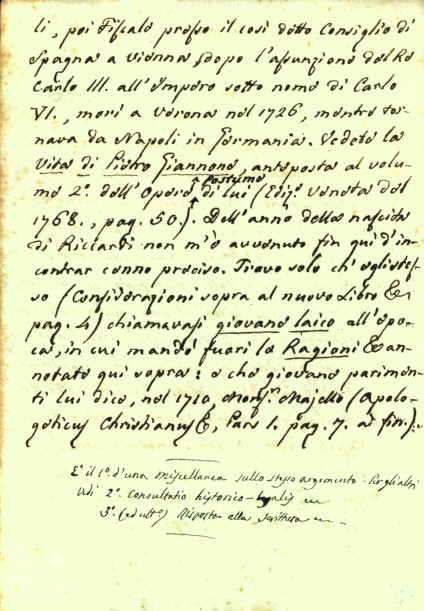 li, poi Fiscale presso il così detto Consiglio di
Spagna a Vienna (dopo l'assunzione del Re
Carlo III. all'Impero sotto nome di Carlo
VI., morì a Verona nel 1726, mentre tor-
nava da Napoli in Germania. Vedete la
Vita di Pietro Giannone, anteposta al volu-
me 2º. dell'Opere postume di lui (Ediz.e veneta del
1768., pag. 50.). Dell'anno della nascita
di Riccardi non m'è avvenuto fin quì d'in-
contrar cenno preciso. Trovo solo ch'egli stes-
so (Considerazioni sopra al nuovo Libro &c
pag. 4) chiamavasi giovane laico all'epo-
ca, in cui mandò fuori le Ragioni &c an-
notate quì sopra: e che giovane parimen-
ti lui dice, nel 1710, Mons.r Majello (Apolo-
geticus Christianus &c, Pars 1. pag. 7. in fin.).
E' il 1º. d'una miscellanea sullo stesso argomento. Per gli altri
vedi 2º. Consultatio historico-legalis
3º. (ed ultº) Risposta alla Scrittura